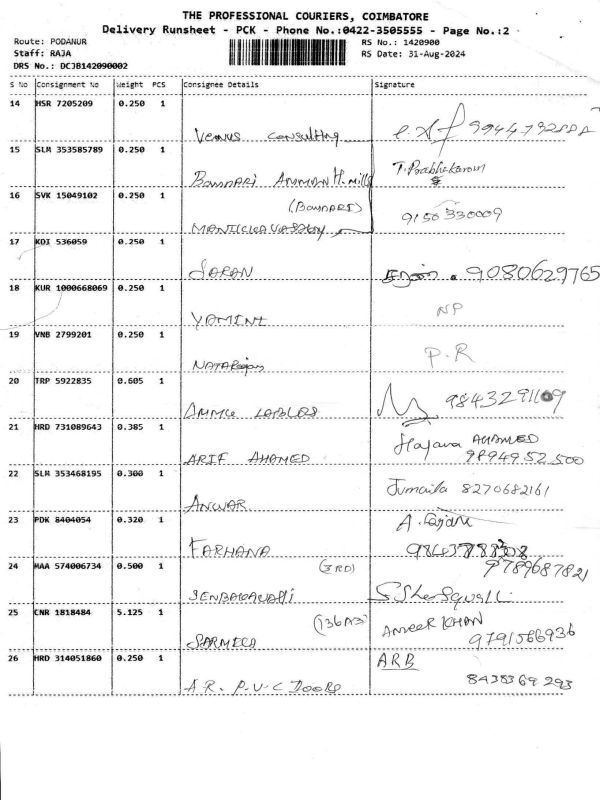 THE PROFESSIONAL COURIERS, COIMBATORE
Delivery Runsheet - PCK - Phone No.:0422-3505555 - Page No.:2
Route: PODANUR RS No.: 1420900
Staff: RAJA RS Date: 31-Aug-2024
DRS No.: DCJB142090002
S No Consignment No Weight PCS Consignee Details Signature
14 HSR 7205209 0.250 1
Venus Consulting
15 SLM 353585789 0.250 1 T. Prabhakaran
Bannari Amman H. mills
16 SVK 15049102 0.250 1 (Bannari) 9150330009
MANICKAVASAGY
17 KDI 536059 0.250 1
SARAN 9080629765
18 KUR 1000668069 0.250 1 NP
YAMINI
19 VNB 2799201 0.250 1 P.R
NATARajan
20 TRP 5922835 0.605 1 9843291109
AMMU LABLES
21 HRD 731089643 0.385 1 Hajara AHAMED
ARIF AHAMED 9894952500
22 SLM 353468195 0.300 1 Jumaila 8270682161
ANWAR
23 PDK 8404054 0.320 1
FARHANA
24 MAA 574006734 0.500 1 (3RD) 9789687821
SENBAGAVALLI
25 CNR 1818484 5.125 1 (136A3) AMEER KHAN
SARMELA 9791566936
26 HRD 314051860 0.250 1 ARB
A.R. P.V.C DOORS 8438369293